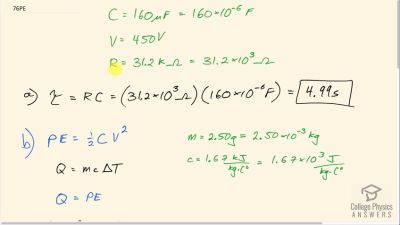 76PE
C = 160μF = 160×10⁻⁶ F
V = 450V
R = 31.2 k Ω = 31.2×10³ Ω
a) τ = RC = (31.2×10³Ω)(160×10⁻⁶F) = 4.99s
b) PE = ½ C V²
m = 2.50g = 2.50×10⁻³ kg
Q = m c ΔT
c = 1.67 kJ/kg·C° = 1.67×10³ J/kg·C°
Q = PE
College Physics
ANSWERS